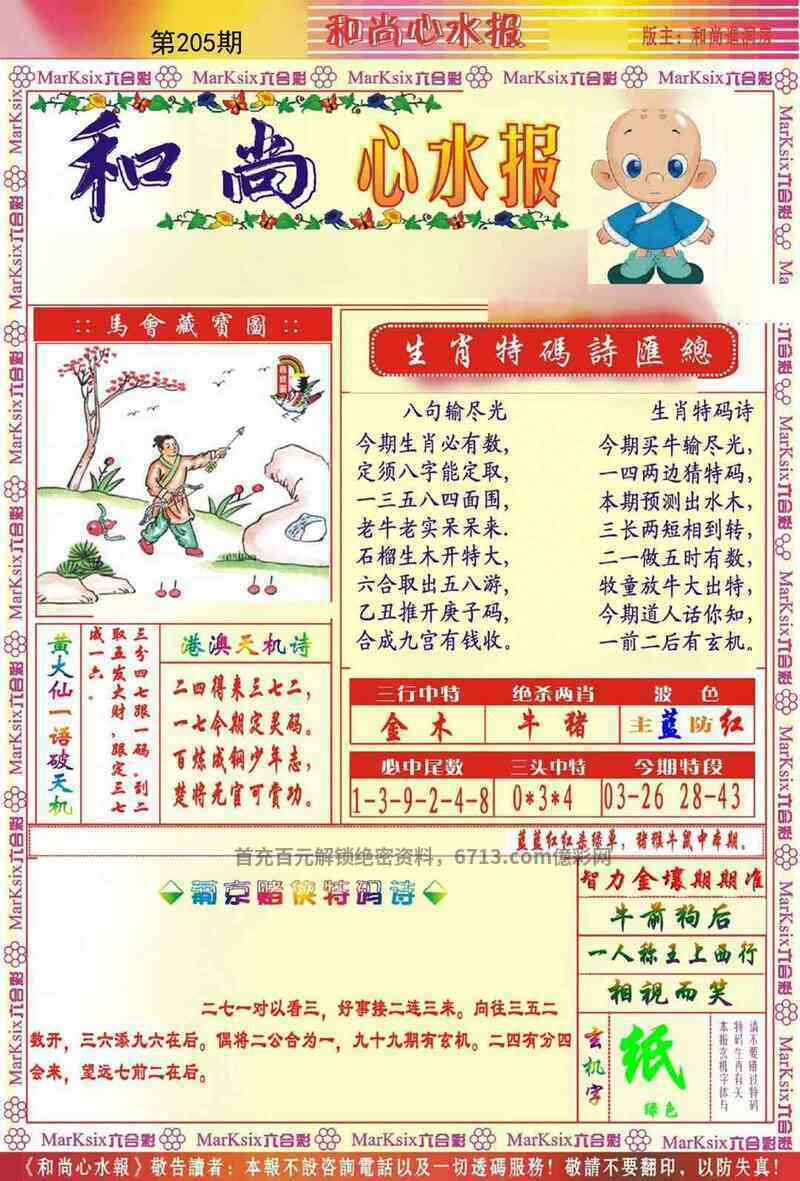 第205期
和尚心水报
MarKsix六合彩 MarKsix六合彩 MarKsix六合彩 MarKsix六合彩 MarKsix六合彩
和尚 心水报
::馬會藏寶圖::
生肖特碼詩匯總
八句输尽光
今期生肖必有数，
定须八字能定取，
一三五八四面围，
老牛老实呆呆来.
石榴生木开特大，
六合取出五八游，
乙丑推开庚子码，
合成九宫有钱收。
生肖特码诗
今期买牛输尽光，
一四两边猜特码，
本期预测出水木，
三长两短相到转，
二一做五时有数，
牧童放牛大出特，
今期道人话你知，
一前二后有玄机。
黄大仙一语破天机
三分四七跟一码。刮二
取五发大财，跟定三七
成一六。
港澳天机诗
二四得来三七二，
一七今期定灵码。
百炼成钢少年志，
楚将无官可赏功。
三行中特 绝杀两肖 波色
金木 牛猪 主蓝防红
必中尾数 三头中特 今期特段
1-3-9-2-4-8 0*3*4 03-26 28-43
蓝蓝红红杀绿单，猪猴牛鼠中本期。
首充百元解锁绝密资料，6713.com億彩网
葡京赌侠特码诗
二七一对以看三，好事接二连三来。向往三五二
数开，三六添九六在后。偶将二公合为一，九十九期有玄机。二四有分四
会来，望远七前二在后。
智力金壤期期准
牛前狗后
一人称王上西行
相视而笑
玄机字
纸
绿色
请不要错过特码
特码生肖有关
本报玄机字体与
MarKsix六合彩 MarKsix六合彩 MarKsix六合彩 MarKsix六合彩 MarKsix六合彩
《和尚心水報》敬告讀者：本報不設咨詢電話以及一切透碼服務！敬請不要翻印，以防失真！